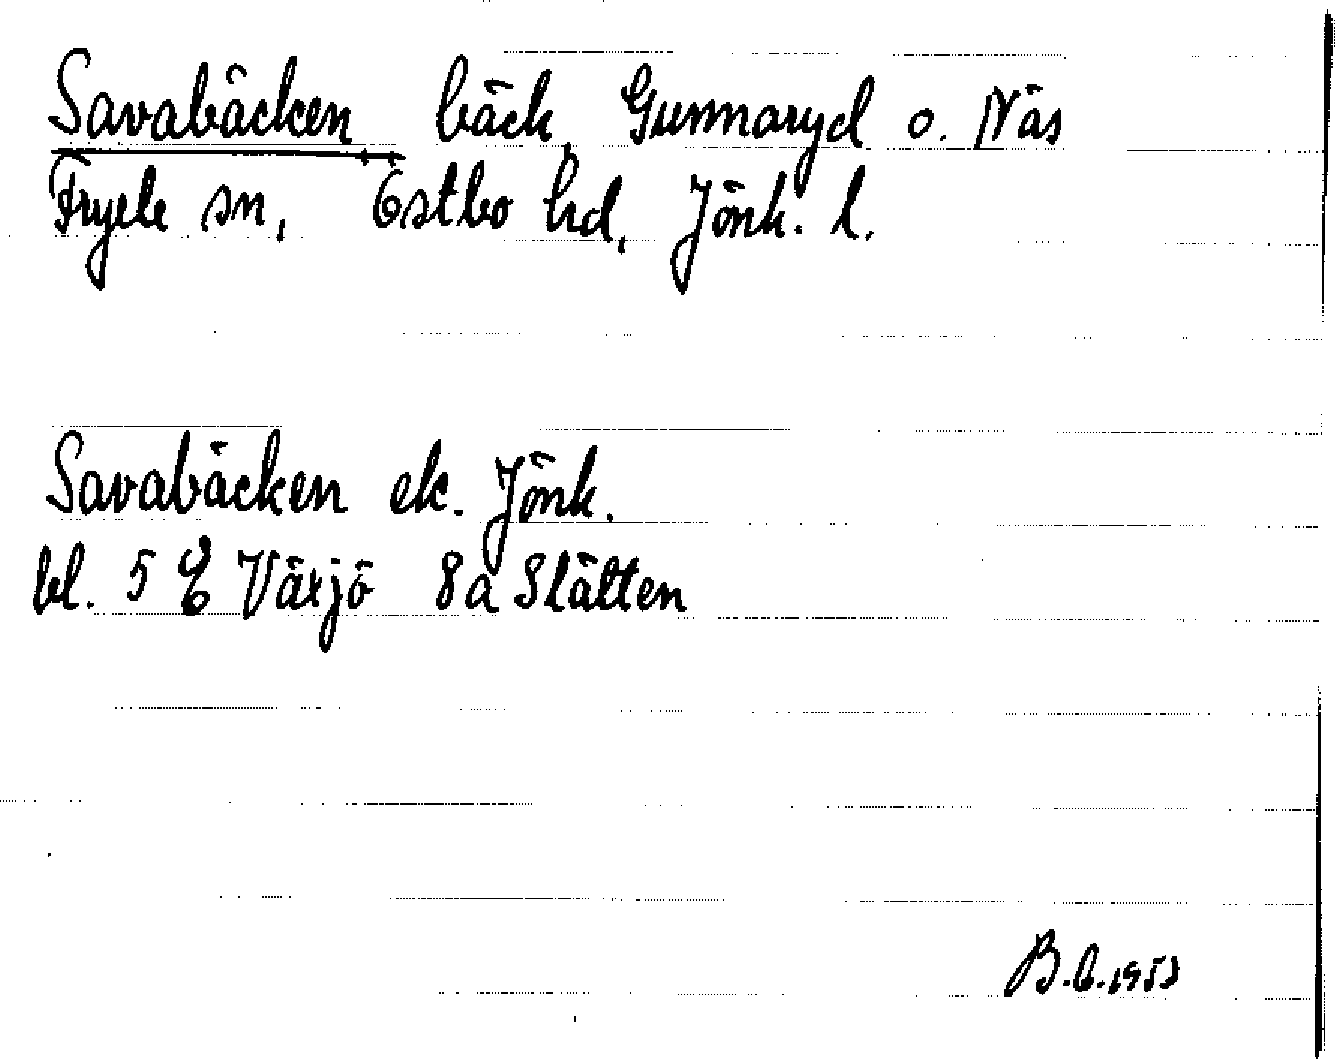 Savabäcken bäck, Gunnaryd o. Näs
Fryele sn, Östbo hd, Jönk. l.
Savabäcken ek. Jönk.
bl. 5 E Växjö 8a Slätten